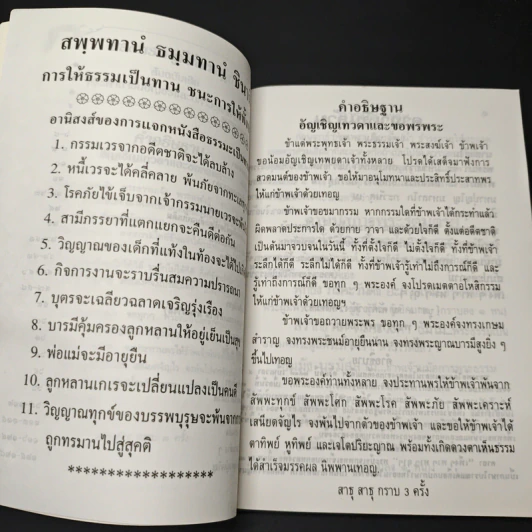 สพฺพทานํ ธมฺมทานํ
การให้ธรรมเป็นทาน ชนะการให้
อานิสงส์ของการแจกหนังสือธรรมะเป็น
1. กรรมเวรจากอดีตชาติจะได้ลบล้าง
2. หนี้เวรจะได้คลี่คลาย พ้นภัยจาก
3. โรคภัยไข้เจ็บจากเจ้ากรรมนายเวรจะ
4. สามีภรรยาที่แตกแยกจะคืนดีต่อกัน
5. วิญญาณของเด็กที่แท้งในท้องจะได้
6. กิจการงานจะราบรื่นสมความปรารถนา
7. บุตรจะเฉลียวฉลาดเจริญรุ่งเรือง
8. บารมีคุ้มครองลูกหลานให้อยู่เย็นเป็นสุข
9. พ่อแม่จะมีอายุยืน
10. ลูกหลานเกเรจะเปลี่ยนแปลงเป็นคนดี
11. วิญญาณทุกข์ของบรรพบุรุษจะพ้นจาก
ถูกทรมานไปสู่สุคติ
********************
คำอธิษฐาน
อัญเชิญเทวดาและขอพรพระ
ข้าแต่พระพุทธเจ้า พระธรรมเจ้า พระสงฆ์เจ้า ข้าพเจ้า
ขอน้อมอัญเชิญเทพยดาเจ้าทั้งหลาย โปรดได้เสด็จมาฟังการ
สวดมนต์ของข้าพเจ้า ขอให้มาอนุโมทนาและประสิทธิ์ประสาทพร
ให้แก่ข้าพเจ้าด้วยเทอญ
ข้าพเจ้าขอขมากรรม หากกรรมใดที่ข้าพเจ้าได้กระทำแล้ว
ผิดพลาดประการใด ด้วยกาย วาจา และด้วยใจก็ดี ตั้งแต่อดีตชาติ
เป็นต้นมาจวบจนในวันนี้ ทั้งที่ตั้งใจก็ดี ไม่ตั้งใจก็ดี ทั้งที่ข้าพเจ้า
ระลึกได้ก็ดี ระลึกไม่ได้ก็ดี ทั้งที่ข้าพเจ้ารู้เท่าไม่ถึงการณ์ก็ดี และ
รู้เท่าถึงการณ์ก็ดี ขอทุก ๆ พระองค์ จงโปรดเมตตาอโหสิกรรม
ให้แก่ข้าพเจ้าด้วยเทอญฯ
ข้าพเจ้าขอถวายพระพร ขอทุก ๆ พระองค์จงทรงเกษม
สำราญ จงทรงพระชนม์อายุยืนนาน จงทรงพระญาณบารมีสูงยิ่ง ๆ
ขึ้นไปเทอญ
ขอพระองค์ท่านทั้งหลาย จงประทานพรให้ข้าพเจ้าพ้นจาก
สัพพะทุกข์ สัพพะโศก สัพพะโรค สัพพะภัย สัพพะเคราะห์
เสนียดจัญไร จงพ้นไปจากตัวของข้าพเจ้า และขอให้ข้าพเจ้าได้
ตาทิพย์ หูทิพย์ และเจโตปริยะญาณ พร้อมทั้งเกิดดวงตาเห็นธรรม
ได้สำเร็จมรรคผล นิพพานเทอญ.
สาธุ สาธุ กราบ 3 ครั้ง